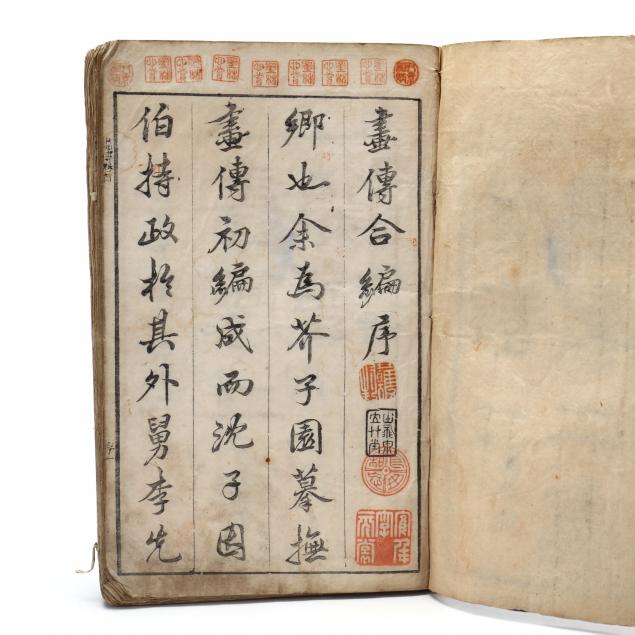 畫傳合編序
鄉也余為芥子園摹撫
畫傳初編成而沈子因
伯持政於其外舅李先